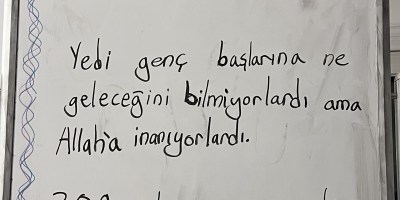 Yedi genç başlarına ne
geleceğini bilmiyorlardı ama
Allah'a inanıyorlardı.